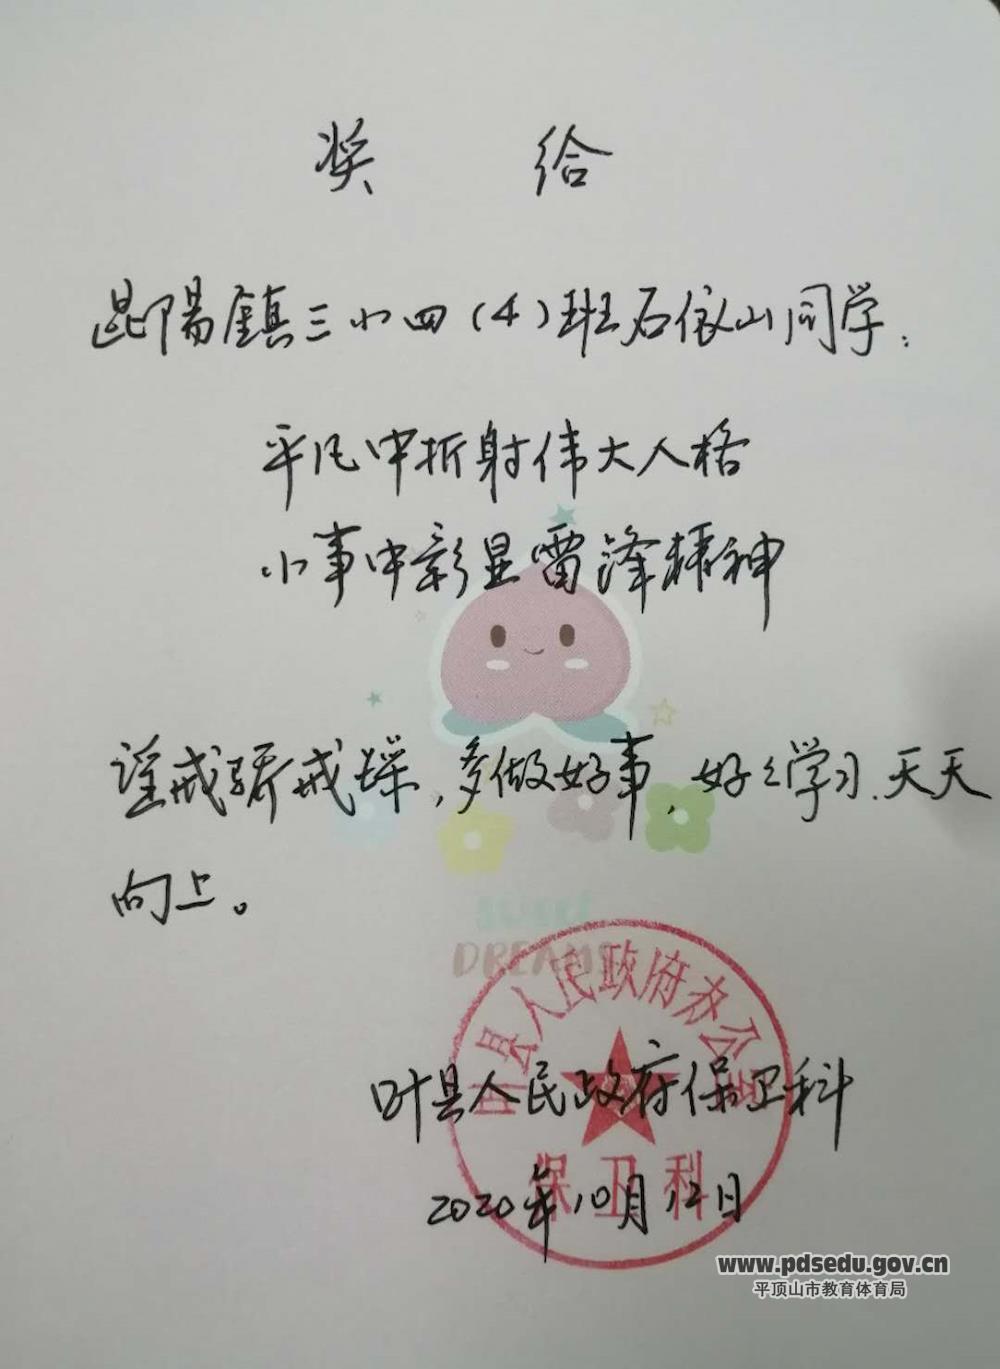 奖 给
昆陽鎮三小四(4)班石依山同学:
平凡中折射伟大人格
小事中彰显雷锋精神
望戒骄戒躁,多做好事,好好学习、天天
向上。
SWEET
DREAMS
叶县人民政府办公室
叶县人民政府保卫科
保卫科
2020年10月12日
www.pdsedu.gov.cn
平顶山市教育体育局